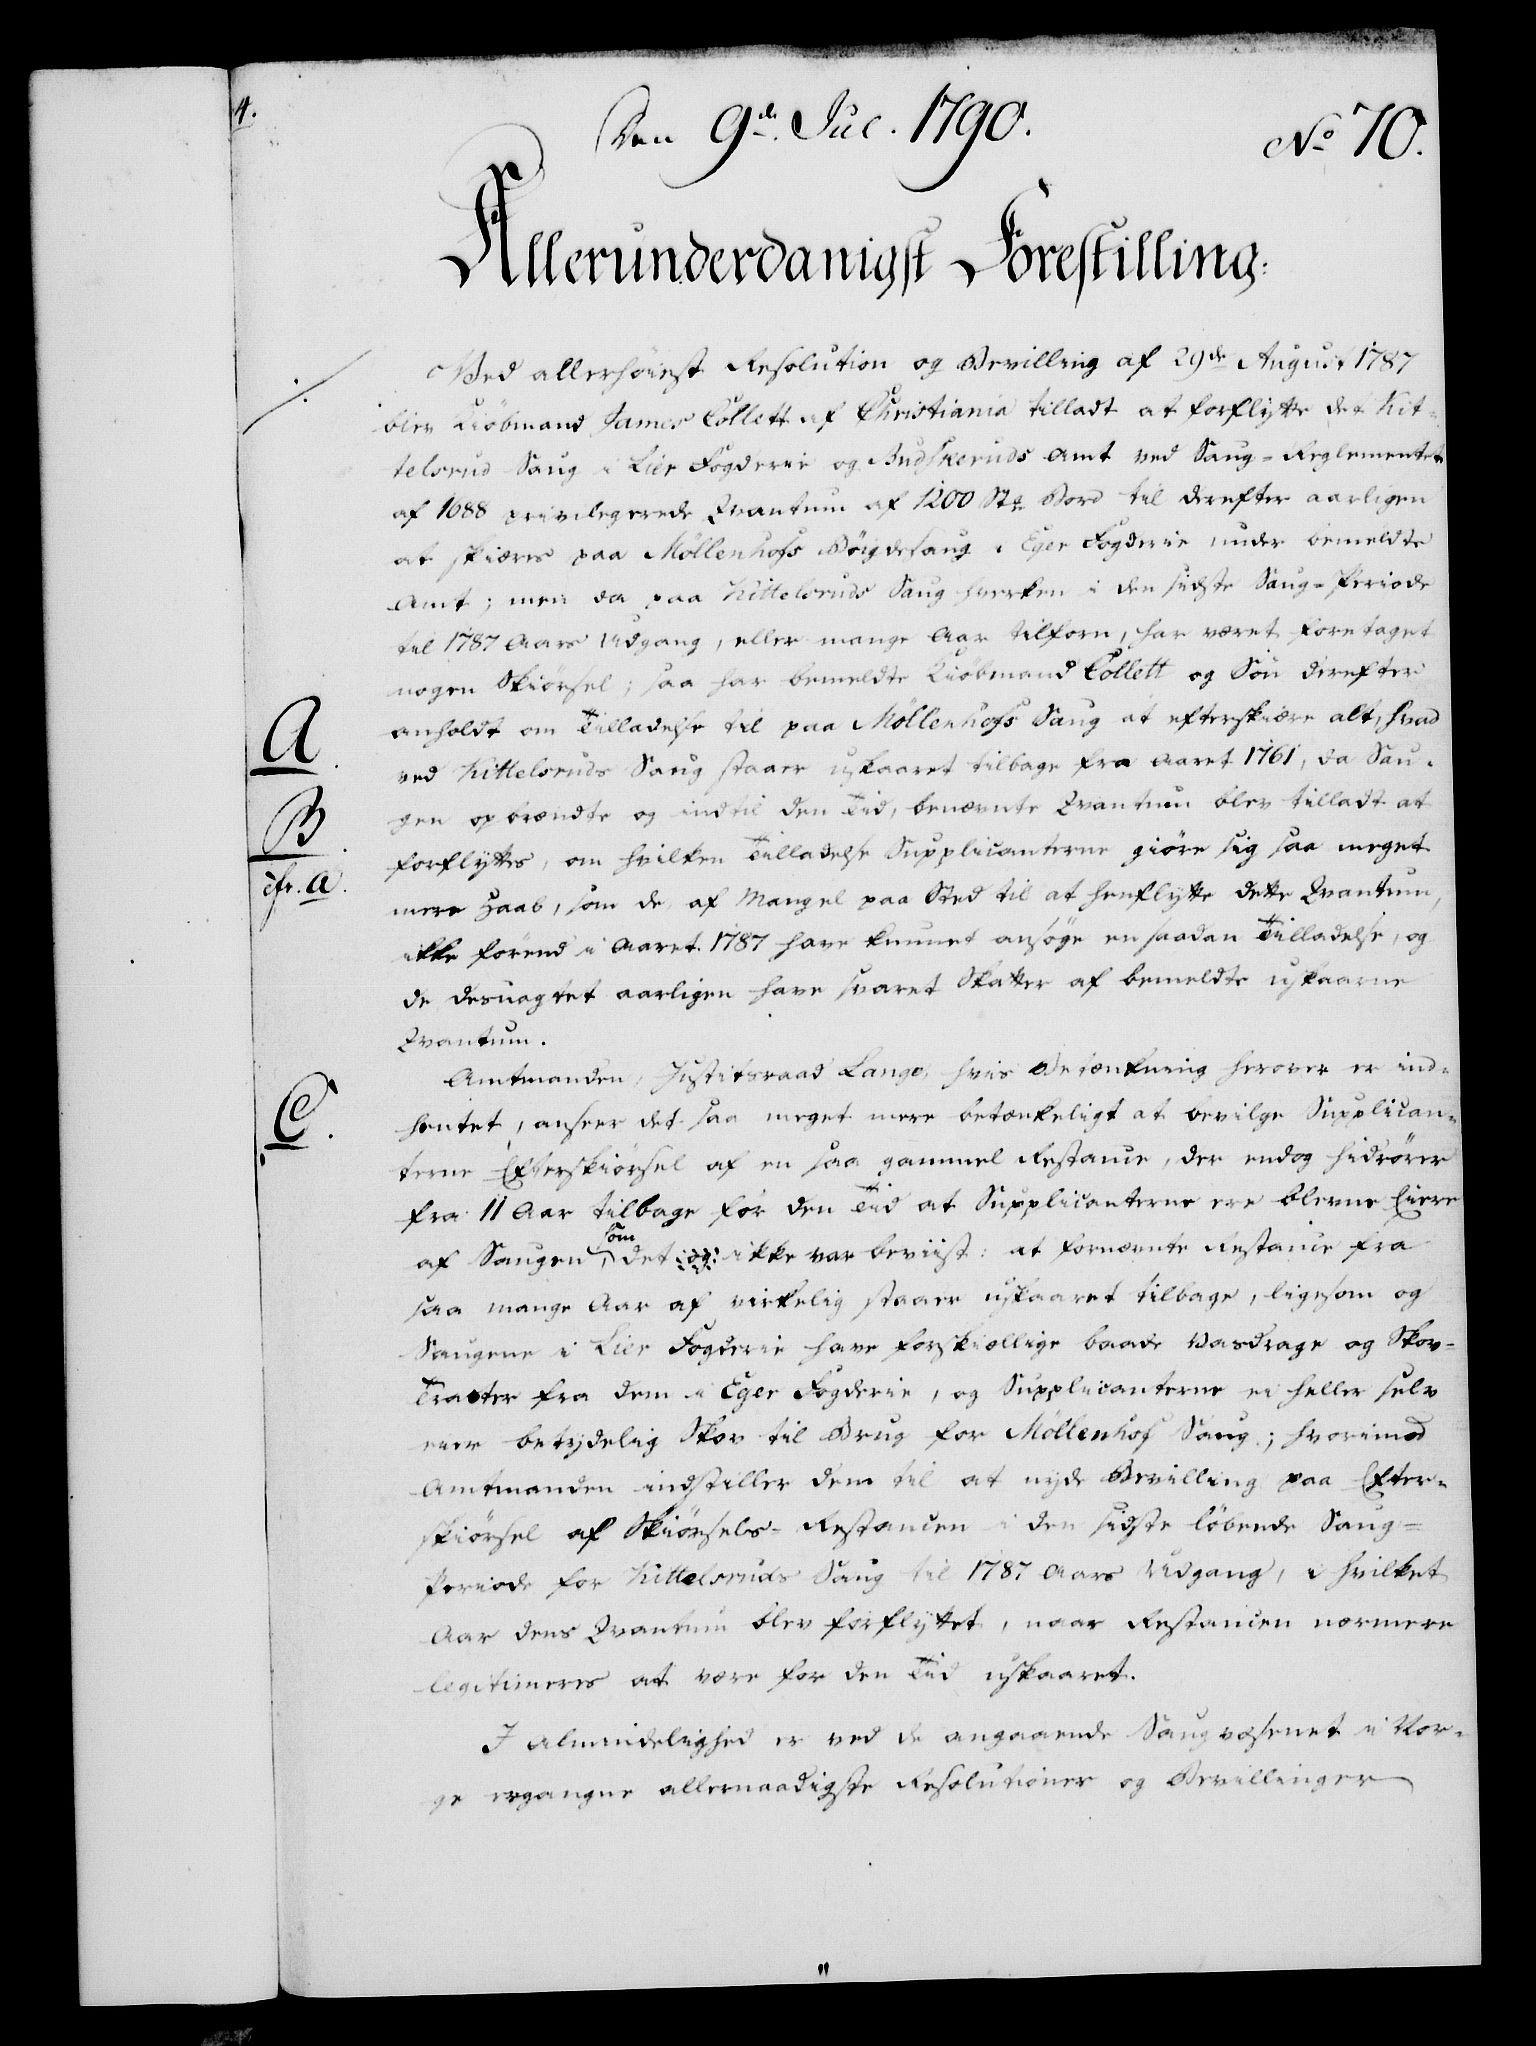 4.
Den 9de Jul. 1790.
No 70.
Allerunderdanigst Forestilling:
Ved allerhöiest Resolution og Bevilling af 29de August 1787
blev Kiöbmand James Collett af Christiania tilladt at forflytte det Kit-
telsrud Saug i Lier Fogderie og Budskeruds Amt ved Saug-Reglementet
af 1688 privilegerede Qvantum af 1200 Stk Bord til derefter aarligen
at skiæres paa Möllenhofs Böigdesaug i Eger Fogderie under bemeldte
Amt; men da paa Kittelsruds Saug hverken i den sidste Saug-Periode
til 1787 Aars Udgang, eller mange Aar tilforn, har været foretaget
nogen Skiörsel; saa har bemeldte Kiöbmand Collett og Sön derefter
A.
anholdt om Tilladelse til paa Möllenhofs Saug at efterskiære alt, hvad
ved Kittelsruds Saug staaer uskaaret tilbage fra Aaret 1761, da Sau-
B.
gen opbrændte og indtil den Tid, benævnte Qvantum blev tilladt at
forflyttes, om hvilken Tilladelse Supplicanterne giöre sig saa meget
cfr. a.
mere Haab, som de af Mangel paa Sted til at henflytte dette Qvantum,
ikke förend i Aaret 1787 have kunnet ansöge en saadan Tilladelse, og
de desuagtet aarligen have svaret Skatter af bemeldte uskaarne
Qvantum.
Amtmanden, Justitsraad Lange, hvis Betænkning herover er ind-
C.
hentet, anseer det saa meget mere betænkeligt at bevilge Supplican-
terne Efterskiörsel af en saa gammel Restance, der endog hidrörer
fra 11 Aar tilbage för den Tid at Supplicanterne ere blevne Eiere
af Saugen, som det og ikke var beviist: at fornævnte Restance fra
saa mange Aar af virkelig staaer uskaaret tilbage, ligesom og
Saugene i Lier Fogderie have forskiællige baade Vasdrage og Skov-
Tracter fra dem i Eger Fogderie, og Supplicanterne ei heller selv
eier betydelig Skov til Brug for Möllenhof Saug; hvorimod
Amtmanden indstiller dem til at nyde Bevilling paa Efter-
skiörsel af Skiörsels-Restancen i den sidste löbende Saug-
Periode for Kittelsruds Saug til 1787 Aars Udgang, i hvilket
Aar dens Qvantum blev forflyttet, naar Restancen nærmere
legitimeres at være for den Tid uskaaret.
I Almindelighed er ved de angaaende Saugvæsenet i Nor-
ge ergangne allernaadigste Resolutioner og Bevillinger